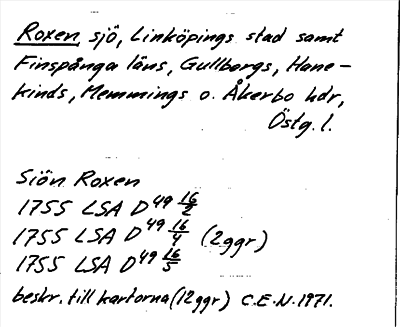 Roxen, sjö, Linköpings stad samt
Finspånga läns, Gullbergs, Hane-
kinds, Memmings o. Åkerbo hdr,
Östg. l.
Siön Roxen
1755 LSA D49 16/2
1755 LSA D49 16/4 (2ggr)
1755 LSA D49 16/5
beskr. till kartorna (12ggr) C.E.N. 1971.